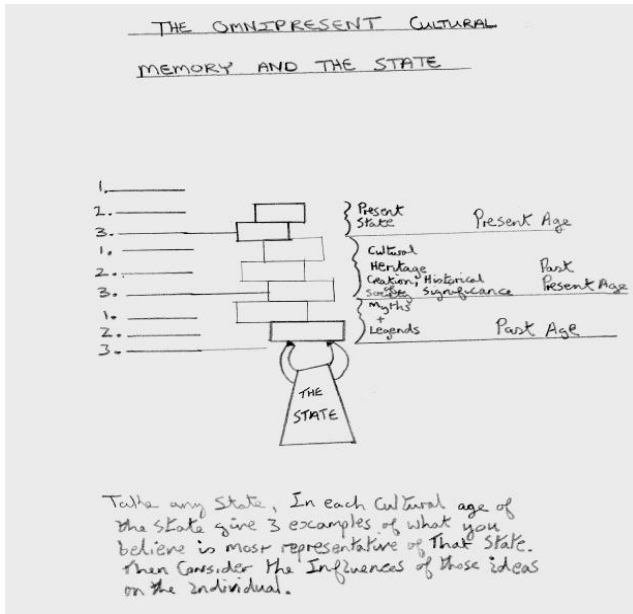 THE OMNIPRESENT CULTURAL
MEMORY AND THE STATE
1.
2.
3.
1.
2.
3.
1.
2.
3.
Present
State
Present Age
Cultural
Heritage
Creation, Historical
of
Society Significance
Past
Present Age
Myths
+
Legends
Past Age
THE
STATE
Take any State, In each Cultural age of
the State give 3 examples of what you
believe is most representative of That State.
Then Consider the Influences of those ideas
on the individual.